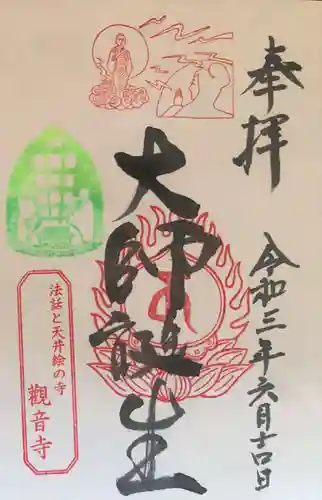 奉拝
令和三年六月十四日
大師誕生
法話と天井絵の寺
觀音寺